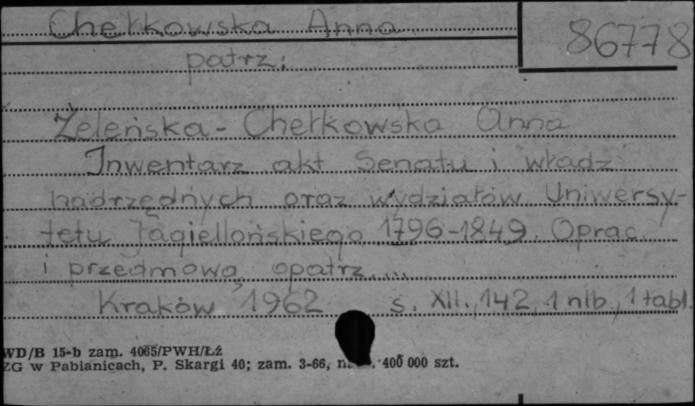 Chełkowska Anna
86778
patrz:
Żeleńska-Chełkowska Anna
Inwentarz akt Senatu i władz
nadrzędnych oraz wydziałów Uniwersy-
tetu Jagiellońskiego 1796-1849. Oprac.
i przedmową opatrz. ...
Kraków 1962 s. XII, 142, 1 nlb., 1 tabl.
WD/B 15-b zam. 4065/PWH/Łź
ZG w Pabianicach, P. Skargi 40; zam. 3-66, 400 000 szt.